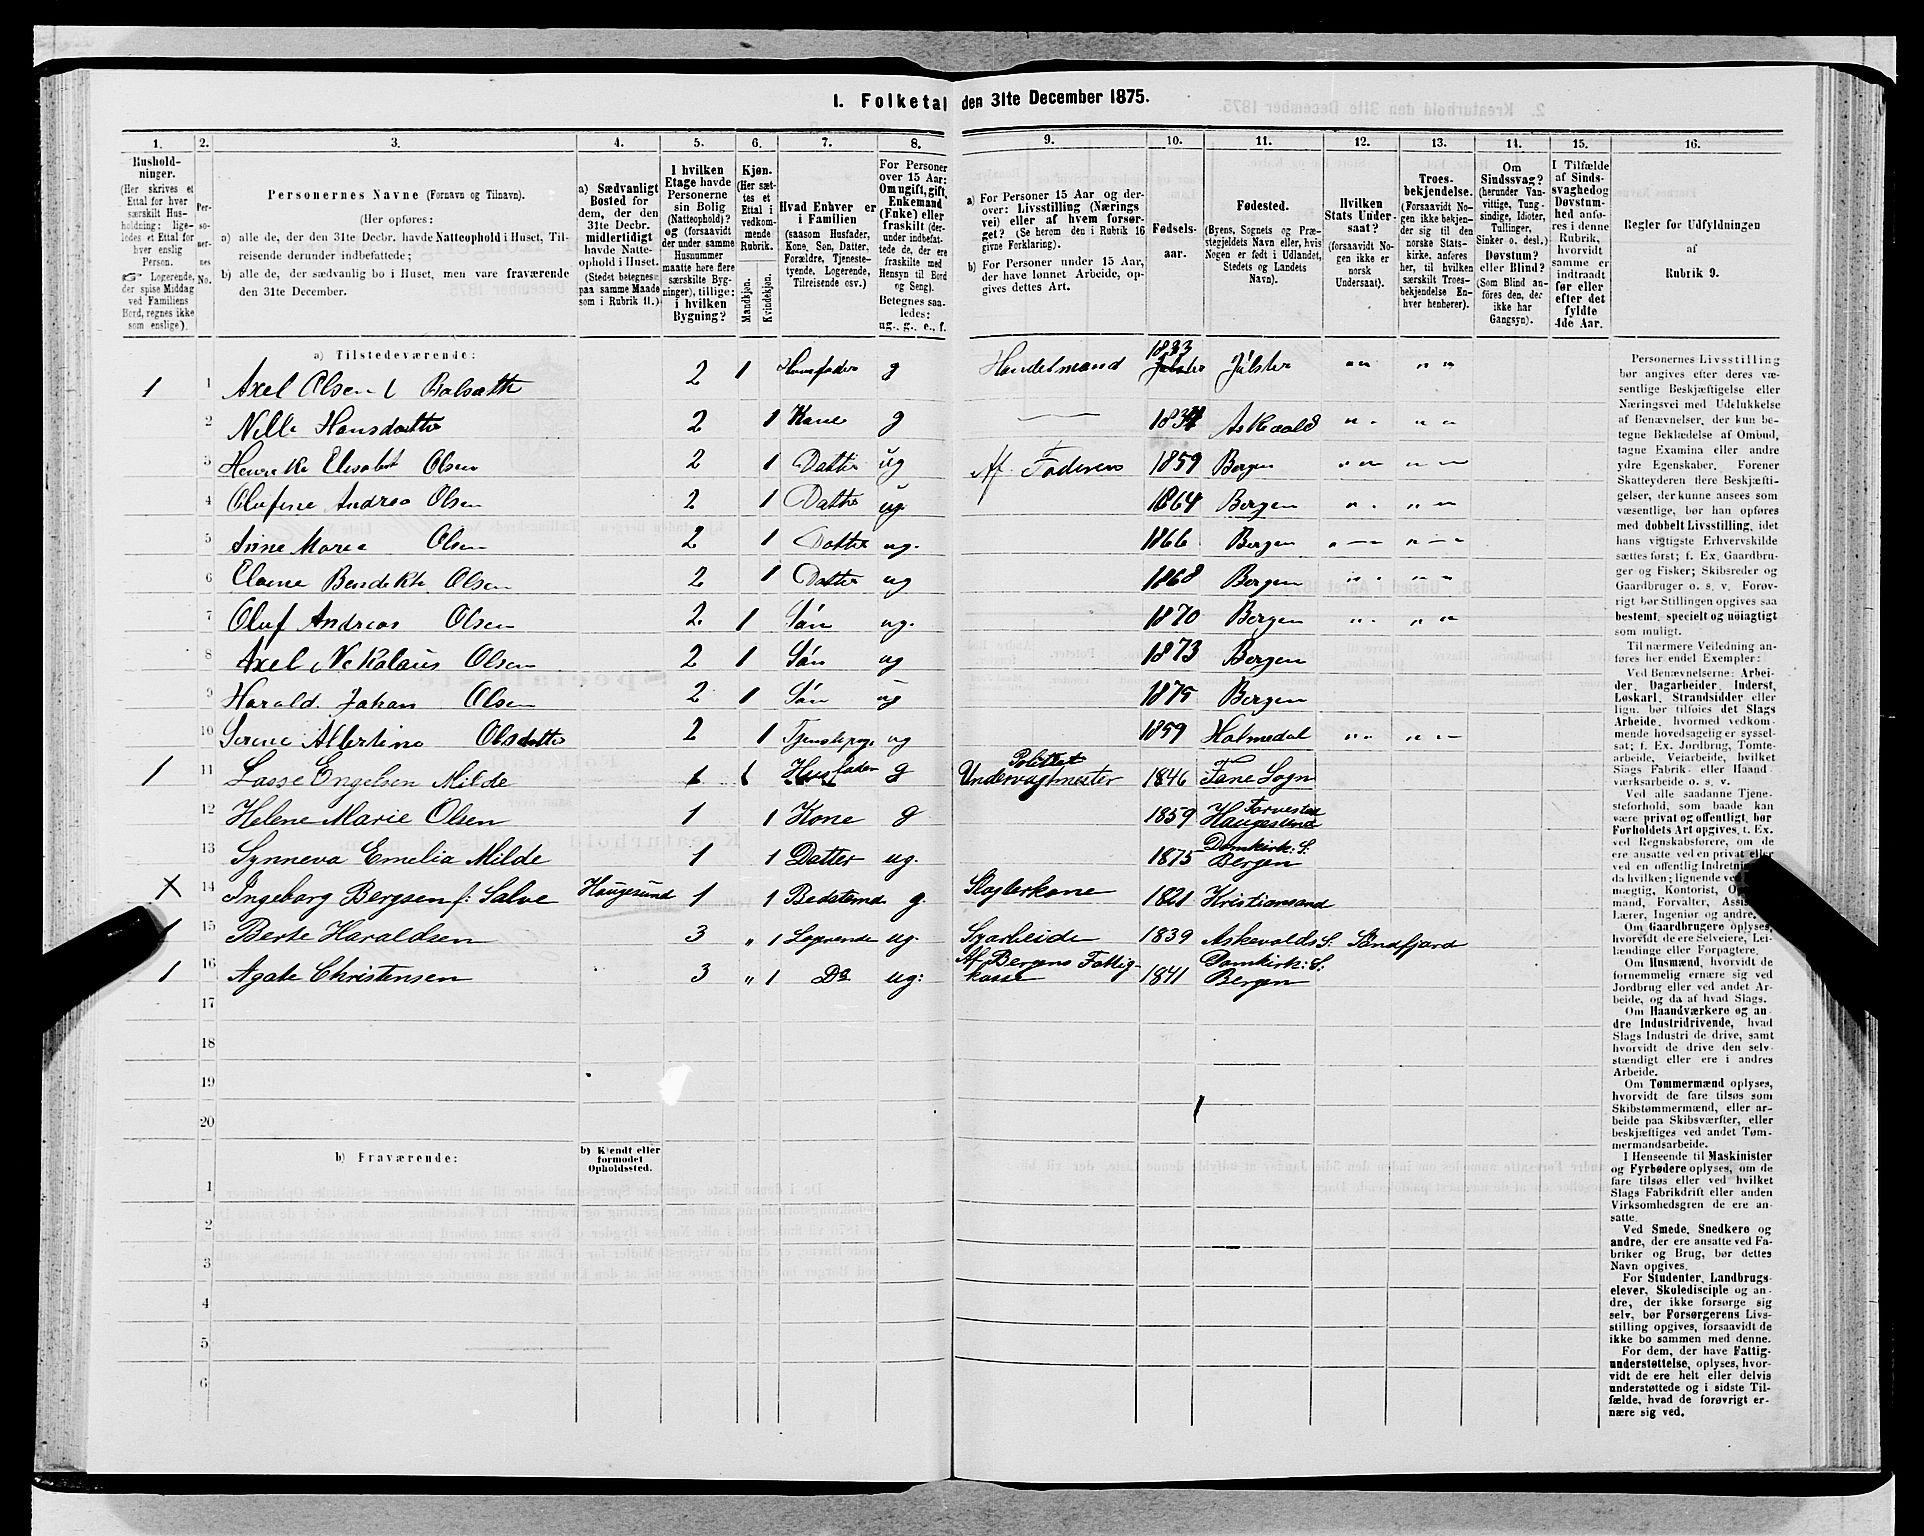 1. Folketal den 31te December 1875.
1. 2. 3. 4. 5. 6. 7. 8. 9. 10. 11. 12. 13. 14. 15. 16.
Hushold-
ninger.
(Her skrives et
Ettal for hver
særskilt Hus-
holdning: lige-
ledes et Ettal for
hver enslig
Person.
☞ Logerende,
der spise Middag
ved Familiens
Bord, regnes ikke
som enslige).
Per-
so-
ner-
nes
No.
Personernes Navne (Fornavn og Tilnavn).
(Her opføres:
a) alle de, der den 31te Decbr. havde Natteophold i Huset, Til-
reisende derunder indbefattede;
b) alle de, der sædvanlig bo i Huset, men vare fraværende
den 31te December.
a) Sædvanligt
Bosted for
dem, der den
31te Decbr.
midlertidigt
havde Natte-
ophold i Huset.
(Stedet betegnes
paa samme Maade
som i Rubrik 11.)
I hvilken
Etage havde
Personerne
sin Bolig
(Natteophold)?
og (forsaavidt
der under samme
Husnummer
maatte høre flere
særskilte Byg-
ninger), tillige:
i hvilken
Bygning?
Kjøn.
(Her sæt-
tes et
Ettal i
vedkom-
mende
Rubrik.
Mandkjøn.
Kvindekjøn.
Hvad Enhver er
i Familien
(saasom Husfader,
Kone, Søn, Datter,
Forældre, Tjeneste-
tyende, Logerende,
Tilreisende osv.)
For Personer
over 15 Aar:
Om ugift, gift,
Enkemand
(Enke) eller
fraskilt (der-
under indbefat-
tede de, der ere
fraskilte med
Hensyn til Bord
og Seng).
Betegnes saa-
ledes:
ug., g., e., f.
a) For Personer 15 Aar og der-
over: Livsstilling (Nærings
vei) eller af hvem forsør-
get? (Se herom den i Rubrik 16
givne Forklaring).
b) For Personer under 15 Aar,
der have lønnet Arbeide, op-
gives dettes Art.
Fødsels-
aar.
Fødested.
(Byens, Sognets og Præ-
stegjeldets Navn eller, hvis
Nogen er født i Udlandet,
Stedets og Landets
Navn).
Hvilken
Stats Under-
saat?
(forsaavidt No-
gen ikke er
norsk
Undersaat).
Troes-
bekjendelse.
(Forsaavidt No-
gen ikke bekjen-
der sig til den
norske Stats-
kirke, anføres
her, til hvilken
særskilt Troes-
bekjendelse En-
hver henhører).
Om
Sindssvag?
(herunder Van-
vittige, Tung-
sindige, Idioter,
Sinker o. desl.)
Døvstum?
eller Blind?
(Som Blind an-
føres den, der
ikke har
Gangsyn).
I Tilfælde
af Sinds-
svaghed og
Døvstum-
hed anfø-
res i denne
Rubrik,
hvorvidt
samme er
indtraadt
før eller
efter det
fyldte
4de Aar.
Regler for Udfyldningen
af
Rubrik 9.
a) Tilstedeværende:
1 1 Axel Olsen Balsath 2 1 Huusfader g Handelmand 1833 Jølster „ „ „ „
2 Nille Hansdatter 2 1 Kone g 1834 Askvold „ „ „ „
3 Henrike Elisabet Olsen 2 1 Datter ug Af Faderen 1859 Bergen „ „ „ „
4 Olufine Andrea Olsen 2 1 Datter ug. 1864 Bergen „ „ „ „
5 Anne Marie Olsen 2 1 Datter ug. 1866 Bergen „ „ „ „
6 Elene Bendikte Olsen 2 1 Datter ug 1868 Bergen „ „ „ „
7 Oluf Andreas Olsen 2 1 Søn ug. 1870 Bergen „ „ „ „
8 Axel Nekolaus Olsen 2 1 Søn ug 1873 Bergen
9 Harald Johan Olsen 2 1 Søn ug 1875 Bergen
10 Serene Albertine Olsdatter 2 1 Tjenstepige ug 1859 Holmedal „ „ „ „
1 11 Lasse Engelsen Milde 1 1 Husfader g Politiet Undervagtmester 1846 Fane Sogn
12 Helene Marie Olsen 1 1 Kone g 1859 Torvestad Haugesund
13 Synneva Emelia Milde 1 1 Datter ug. 1875 Domkirk: S: Bergen
X 14 Ingeborg Bergsen f: Salve Haugesund 1 1 Bedstemo g. Slagterkone 1821 Kristiansand
1 15 Berte Haraldsen 3 „ 1 Logerende ug. Syarbeide 1839 Askevolds S: Søndfjord
1 16 Agate Christensen 3 „ 1 Do ug: Af Bergens Fattig-kasse 1841 Domkirk: S: Bergen
17
18
19
20
b) Fraværende:
b) Kjendt eller
formodet
Opholdssted.
1
2
3
4
5
6
Personernes Livsstilling
bør angives efter deres væ-
sentlige Beskjæftigelse eller
Næringsvei med Udelukkelse
af Benævnelser, der kun be-
tegne Beklædelse af Ombud,
tagne Examina eller andre
ydre Egenskaber. Forener
Skatteyderen flere Beskjæfti-
gelser, der kunne ansees som
væsentlige, bør han opføres
med dobbelt Livsstilling, idet
hans vigtigste Erhvervskilde
sættes først; f. Ex. Gaardbru-
ger og Fisker; Skibsreder og
Gaardbruger o. s. v. Forøv-
rigt bør Stillingen opgives saa
bestemt, specielt og nøiagtigt
som muligt.
Til nærmere Veiledning an-
føres her endel Exempler:
Ved Benævnelserne: Arbei-
der, Dagarbeider, Inderst,
Løskarl, Strandsidder eller
lign. bør tilføies det Slags
Arbeide, hvormed vedkom-
mende hovedsagelig er syssel-
sat; f. Ex. Jordbrug, Tomte-
arbeide, Veiarbeide, hvilket
Slags Fabrik- eller Haand-
værksarbeide o. s. v.
Ved alle saadanne Tjene-
steforhold, som baade kan
være privat og offentligt, bør
Forholdets Art opgives, f. Ex.
ved Regnskabsførere, om de
ere ansatte ved en privat eller
ved en offentlig Indretning
da hvilken; lignende ved
mægtig, Kontorist,
mand, Forvalter,
Lærer, Ingeniør og andre.
Om Gaardbrugere oplyses,
hvorvidt de ere Selveiere, Lei-
lændinge eller Forpagtere.
Om Husmænd, hvorvidt de
fornemmelig ernære sig ved
Jordbrug eller ved andet Ar-
beide, og da af hvad Slags.
Om Haandværkere og an-
dre Industridrivende, hvad
Slags Industri de drive, samt
hvorvidt de drive den selv-
stændigt eller ere i andres
Arbeide.
Om Tømmermænd oplyses,
hvorvidt de fare tilsøs som
Skibstømmermænd, eller ar-
beide paa Skibsværfter, eller
beskjæftiges ved andet Tøm-
mermandsarbeide.
I Henseende til Maskinister
og Fyrbødere oplyses, om de
fare tilsøs eller ved hvilket
Slags Fabrikdrift eller anden
Virksomhedsgren de ere an-
satte.
Ved Smede, Snedkere og
andre, der ere ansatte ved Fa-
briker og Brug, bør dettes
Navn opgives.
For Studenter, Landbrugs-
elever, Skoledisciple og an-
dre, der ikke forsørge sig
selv, bør Forsørgerens Livs-
stilling opgives, forsaavidt de
ikke bo sammen med denne.
For dem, der have Fattig-
understøttelse, oplyses, hvor-
vidt de ere helt eller delvis
understøttede og i sidste Til-
fælde, hvad de forøvrigt er-
nære sig ved.